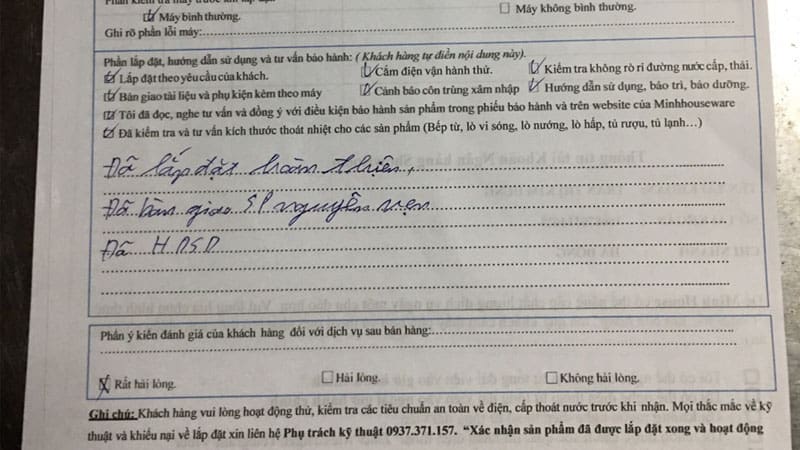 Phần kiểm tra máy trước khi lắp đặt
☑ Máy bình thường. ☐ Máy không bình thường.
Ghi rõ phần lỗi máy:
Phần lắp đặt, hướng dẫn sử dụng và tư vấn bảo hành: ( Khách hàng tự điền nội dung này).
☑ Lắp đặt theo yêu cầu của khách. ☑ Cắm điện vận hành thử. ☑ Kiểm tra không rò rỉ đường nước cấp, thải.
☑ Bàn giao tài liệu và phụ kiện kèm theo máy ☑ Cảnh báo côn trùng xâm nhập ☑ Hướng dẫn sử dụng, bảo trì, bảo dưỡng.
☑ Tôi đã đọc, nghe tư vấn và đồng ý với điều kiện bảo hành sản phẩm trong phiếu bảo hành và trên website của Minhhouseware
☑ Đã kiểm tra và tư vấn kích thước thoát nhiệt cho các sản phẩm (Bếp từ, lò vi sóng, lò nướng, lò hấp, tủ rượu, tủ lạnh…)
Đã lắp đặt hoàn thiện,
Đã bàn giao SP nguyên vẹn
Đã HDSD
Phần ý kiến đánh giá của khách hàng đối với dịch vụ sau bán hàng:
☒ Rất hài lòng. ☐ Hài lòng. ☐ Không hài lòng.
Ghi chú: Khách hàng vui lòng hoạt động thử, kiểm tra các tiêu chuẩn an toàn về điện, cấp thoát nước trước khi nhận. Mọi thắc mắc về kỹ
thuật và khiếu nại về lắp đặt xin liên hệ Phụ trách kỹ thuật 0937.371.157. “Xác nhận sản phẩm đã được lắp đặt xong và hoạt động